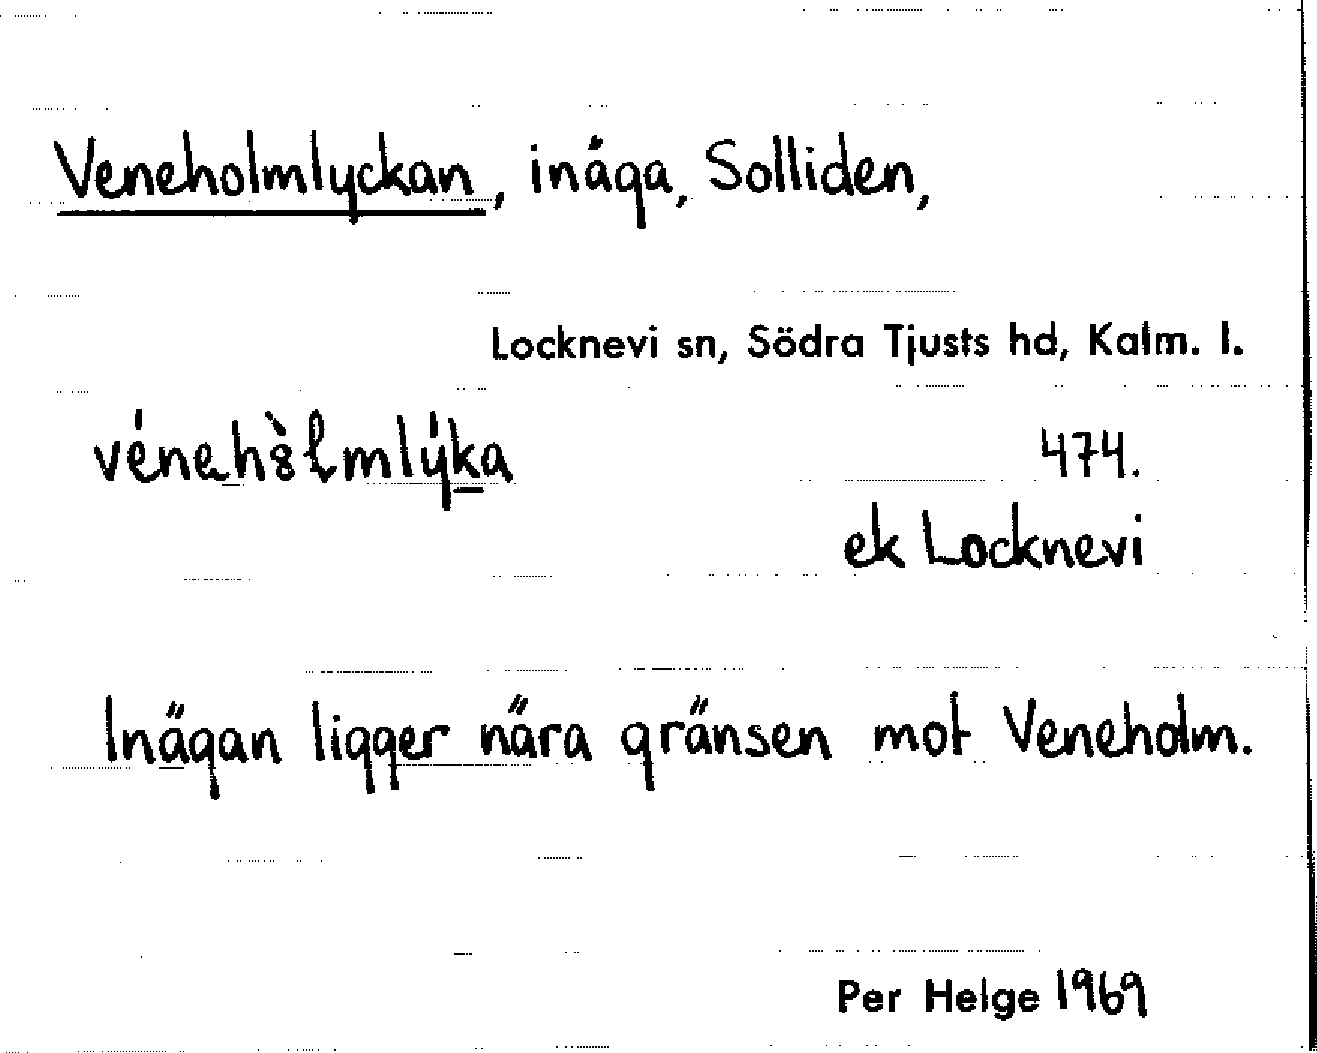 Veneholmlyckan, inäga, Solliden,
Locknevi sn, Södra Tjusts hd, Kalm. l.
474.
ek Locknevi
Inägan ligger nära gränsen mot Veneholm.
Per Helge 1969